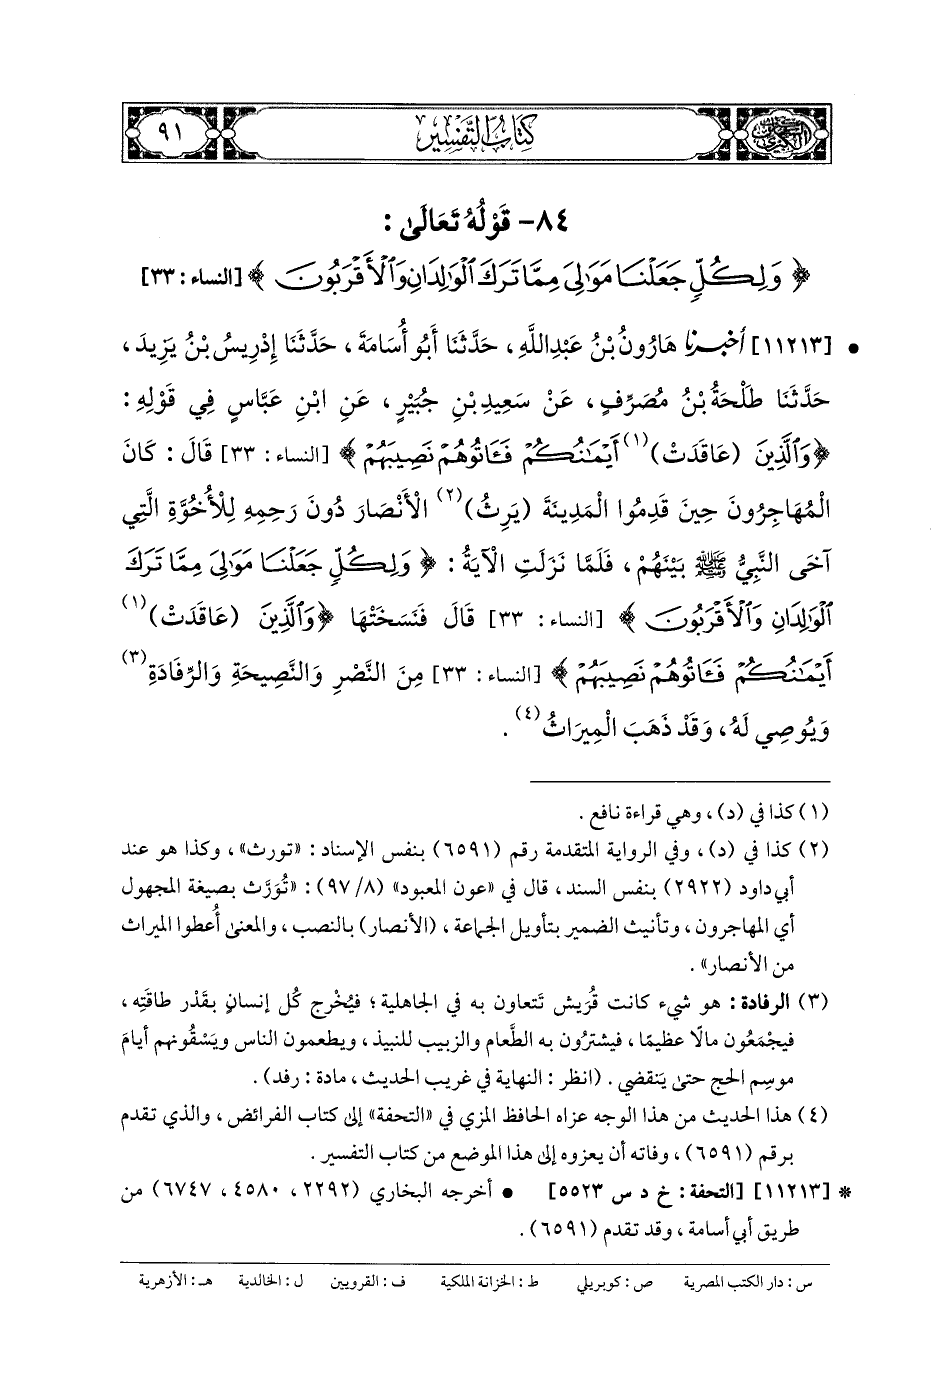 السنن الكبرى
كتاب التفسير
٩١
٨٤- قَوْلُهُ تَعَالَىٰ :
﴿ وَلِكُلٍّ جَعَلْنَا مَوَٰلِىَ مِمَّا تَرَكَ ٱلْوَٰلِدَانِ وَٱلْأَقْرَبُونَ ﴾ [النساء : ٣٣]
• [١١٢١٣] أخبرنا هَارُونُ بْنُ عَبْدِاللَّهِ ، حَدَّثَنَا أَبُو أُسَامَةَ ، حَدَّثَنَا إِدْرِيسُ بْنُ يَزِيدَ ،
حَدَّثَنَا طَلْحَةُ بْنُ مُصَرِّفٍ ، عَنْ سَعِيدِ بْنِ جُبَيْرٍ ، عَنِ ابْنِ عَبَّاسٍ فِي قَوْلِهِ :
﴿وَٱلَّذِينَ (عَاقَدَتْ)(١) أَيْمَٰنُكُمْ فَـَٔاتُوهُمْ نَصِيبَهُمْ ﴾ [النساء : ٣٣] قَالَ : كَانَ
الْمُهَاجِرُونَ حِينَ قَدِمُوا الْمَدِينَةَ (يَرِثُ)(٢) الْأَنْصَارَ دُونَ رَحِمِهِ لِلْأُخُوَّةِ الَّتِي
آخَى النَّبِيُّ ﷺ بَيْنَهُمْ ، فَلَمَّا نَزَلَتِ الْآيَةُ : ﴿ وَلِكُلٍّ جَعَلْنَا مَوَٰلِىَ مِمَّا تَرَكَ
ٱلْوَٰلِدَانِ وَٱلْأَقْرَبُونَ ﴾ [النساء : ٣٣] قَالَ فَنَسَخَتْهَا ﴿وَٱلَّذِينَ (عَاقَدَتْ)(١)
أَيْمَٰنُكُمْ فَـَٔاتُوهُمْ نَصِيبَهُمْ ﴾ [النساء : ٣٣] مِنَ النَّصْرِ وَالنَّصِيحَةِ وَالرِّفَادَةِ(٣)
وَيُوصِي لَهُ ، وَقَدْ ذَهَبَ الْمِيرَاثُ(٤) .
(١) كذا في (د) ، وهي قراءة نافع .
(٢) كذا في (د) ، وفي الرواية المتقدمة رقم (٦٥٩١) بنفس الإسناد : «تورث» ، وكذا هو عند
أبي داود (٢٩٢٢) بنفس السند ، قال في «عون المعبود» (٨/ ٩٧) : «تُوَرَّث بصيغة المجهول
أي المهاجرون ، وتأنيث الضمير بتأويل الجماعة ، (الأنصار) بالنصب ، والمعنىٰ أُعطوا الميراث
من الأنصار» .
(٣) الرفادة : هو شيء كانت قُرَيش تَتعاون به في الجاهلية ؛ فيُخْرج كُل إنسانٍ بقَدْر طاقَتِه ،
فيجْمَعُون مالًا عظيمًا ، فيشتَرُون به الطَّعام والزبيب للنبيذ ، ويطعمون الناس ويَسْقُونهم أيامَ
موسِم الحج حتىٰ يَنقضي . (انظر : النهاية في غريب الحديث ، مادة : رفد) .
(٤) هذا الحديث من هذا الوجه عزاه الحافظ المزي في «التحفة» إلى كتاب الفرائض ، والذي تقدم
برقم (٦٥٩١) ، وفاته أن يعزوه إلى هذا الموضع من كتاب التفسير .
* [١١٢١٣] [التحفة : خ د س ٥٥٢٣] • أخرجه البخاري (٢٢٩٢ ، ٤٥٨٠ ، ٦٧٤٧) من
طريق أبي أسامة ، وقد تقدم (٦٥٩١) .
س : دار الكتب المصرية ص : كوبريلي ط : الخزانة الملكية ف : القرويين ل : الخالدية هـ : الأزهرية